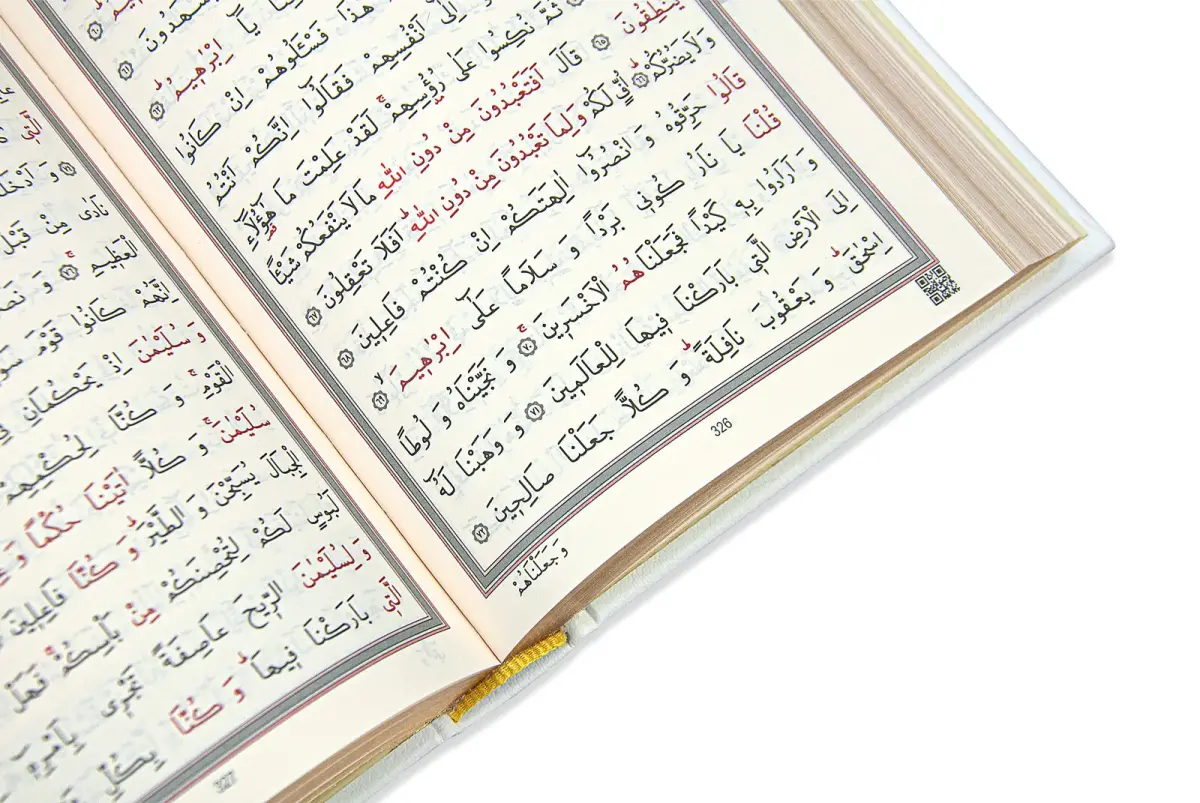 ٦٠
يَشْهَدُونَ ٦١
يَٓا اِبْرٰهِيمُ ٦٢
هٰذَا فَسْـَٔلُوهُمْ اِنْ كَانُوا
اِلٰٓى اَنْفُسِهِمْ فَقَالُٓوا اِنَّكُمْ اَنْتُمُ
ثُمَّ نُكِسُوا عَلٰى رُؤُسِهِمْ لَقَدْ عَلِمْتَ مَا هٰٓؤُلَٓاءِ
يَنْطِقُونَ ٦٥ قَالَ اَفَتَعْبُدُونَ مِنْ دُونِ اللّٰهِ مَا لَا يَنْفَعُكُمْ شَيْـًٔا
وَلَا يَضُرُّكُمْ ٦٦ اُفٍّ لَكُمْ وَلِمَا تَعْبُدُونَ مِنْ دُونِ اللّٰهِ اَفَلَا تَعْقِلُونَ ٦٧
قَالُوا حَرِّقُوهُ وَانْصُرُٓوا اٰلِهَتَكُمْ اِنْ كُنْتُمْ فَاعِلِينَ ٦٨
قُلْنَا يَا نَارُ كُونِي بَرْدًا وَسَلَامًا عَلٰٓى اِبْرٰهِيمَ ٦٩
وَاَرَادُوا بِهِ كَيْدًا فَجَعَلْنَاهُمُ الْاَخْسَرِينَ ٧٠ وَنَجَّيْنَاهُ وَلُوطًا
اِلَى الْاَرْضِ الَّتِي بَارَكْنَا فِيهَا لِلْعَالَمِينَ ٧١ وَوَهَبْنَا لَهُٓ
اِسْحٰقَ وَيَعْقُوبَ نَافِلَةً وَكُلًّا جَعَلْنَا صَالِحِينَ ٧٢
وَجَعَلْنَاهُمْ
326
الَّتِي
٧٤
نَادٰى مِنْ قَبْلُ
الْعَظِيمِ ٧٦
اِنَّهُمْ كَانُوا قَوْمَ
وَسُلَيْمٰنَ اِذْ يَحْكُمَانِ
الْقَوْمِ وَكُنَّا لِحُكْمِهِمْ
سُلَيْمٰنَ وَكُلًّا اٰتَيْنَا حُكْمًا
الْجِبَالَ يُسَبِّحْنَ وَالطَّيْرَ وَكُنَّا فَاعِلِينَ
لَبُوسٍ لَكُمْ لِتُحْصِنَكُمْ مِنْ بَأْسِكُمْ فَهَلْ
وَلِسُلَيْمٰنَ الرِّيحَ عَاصِفَةً تَجْرِي بِاَمْرِهِ
الَّتِي بَارَكْنَا فِيهَا وَكُنَّا بِكُلِّ
327